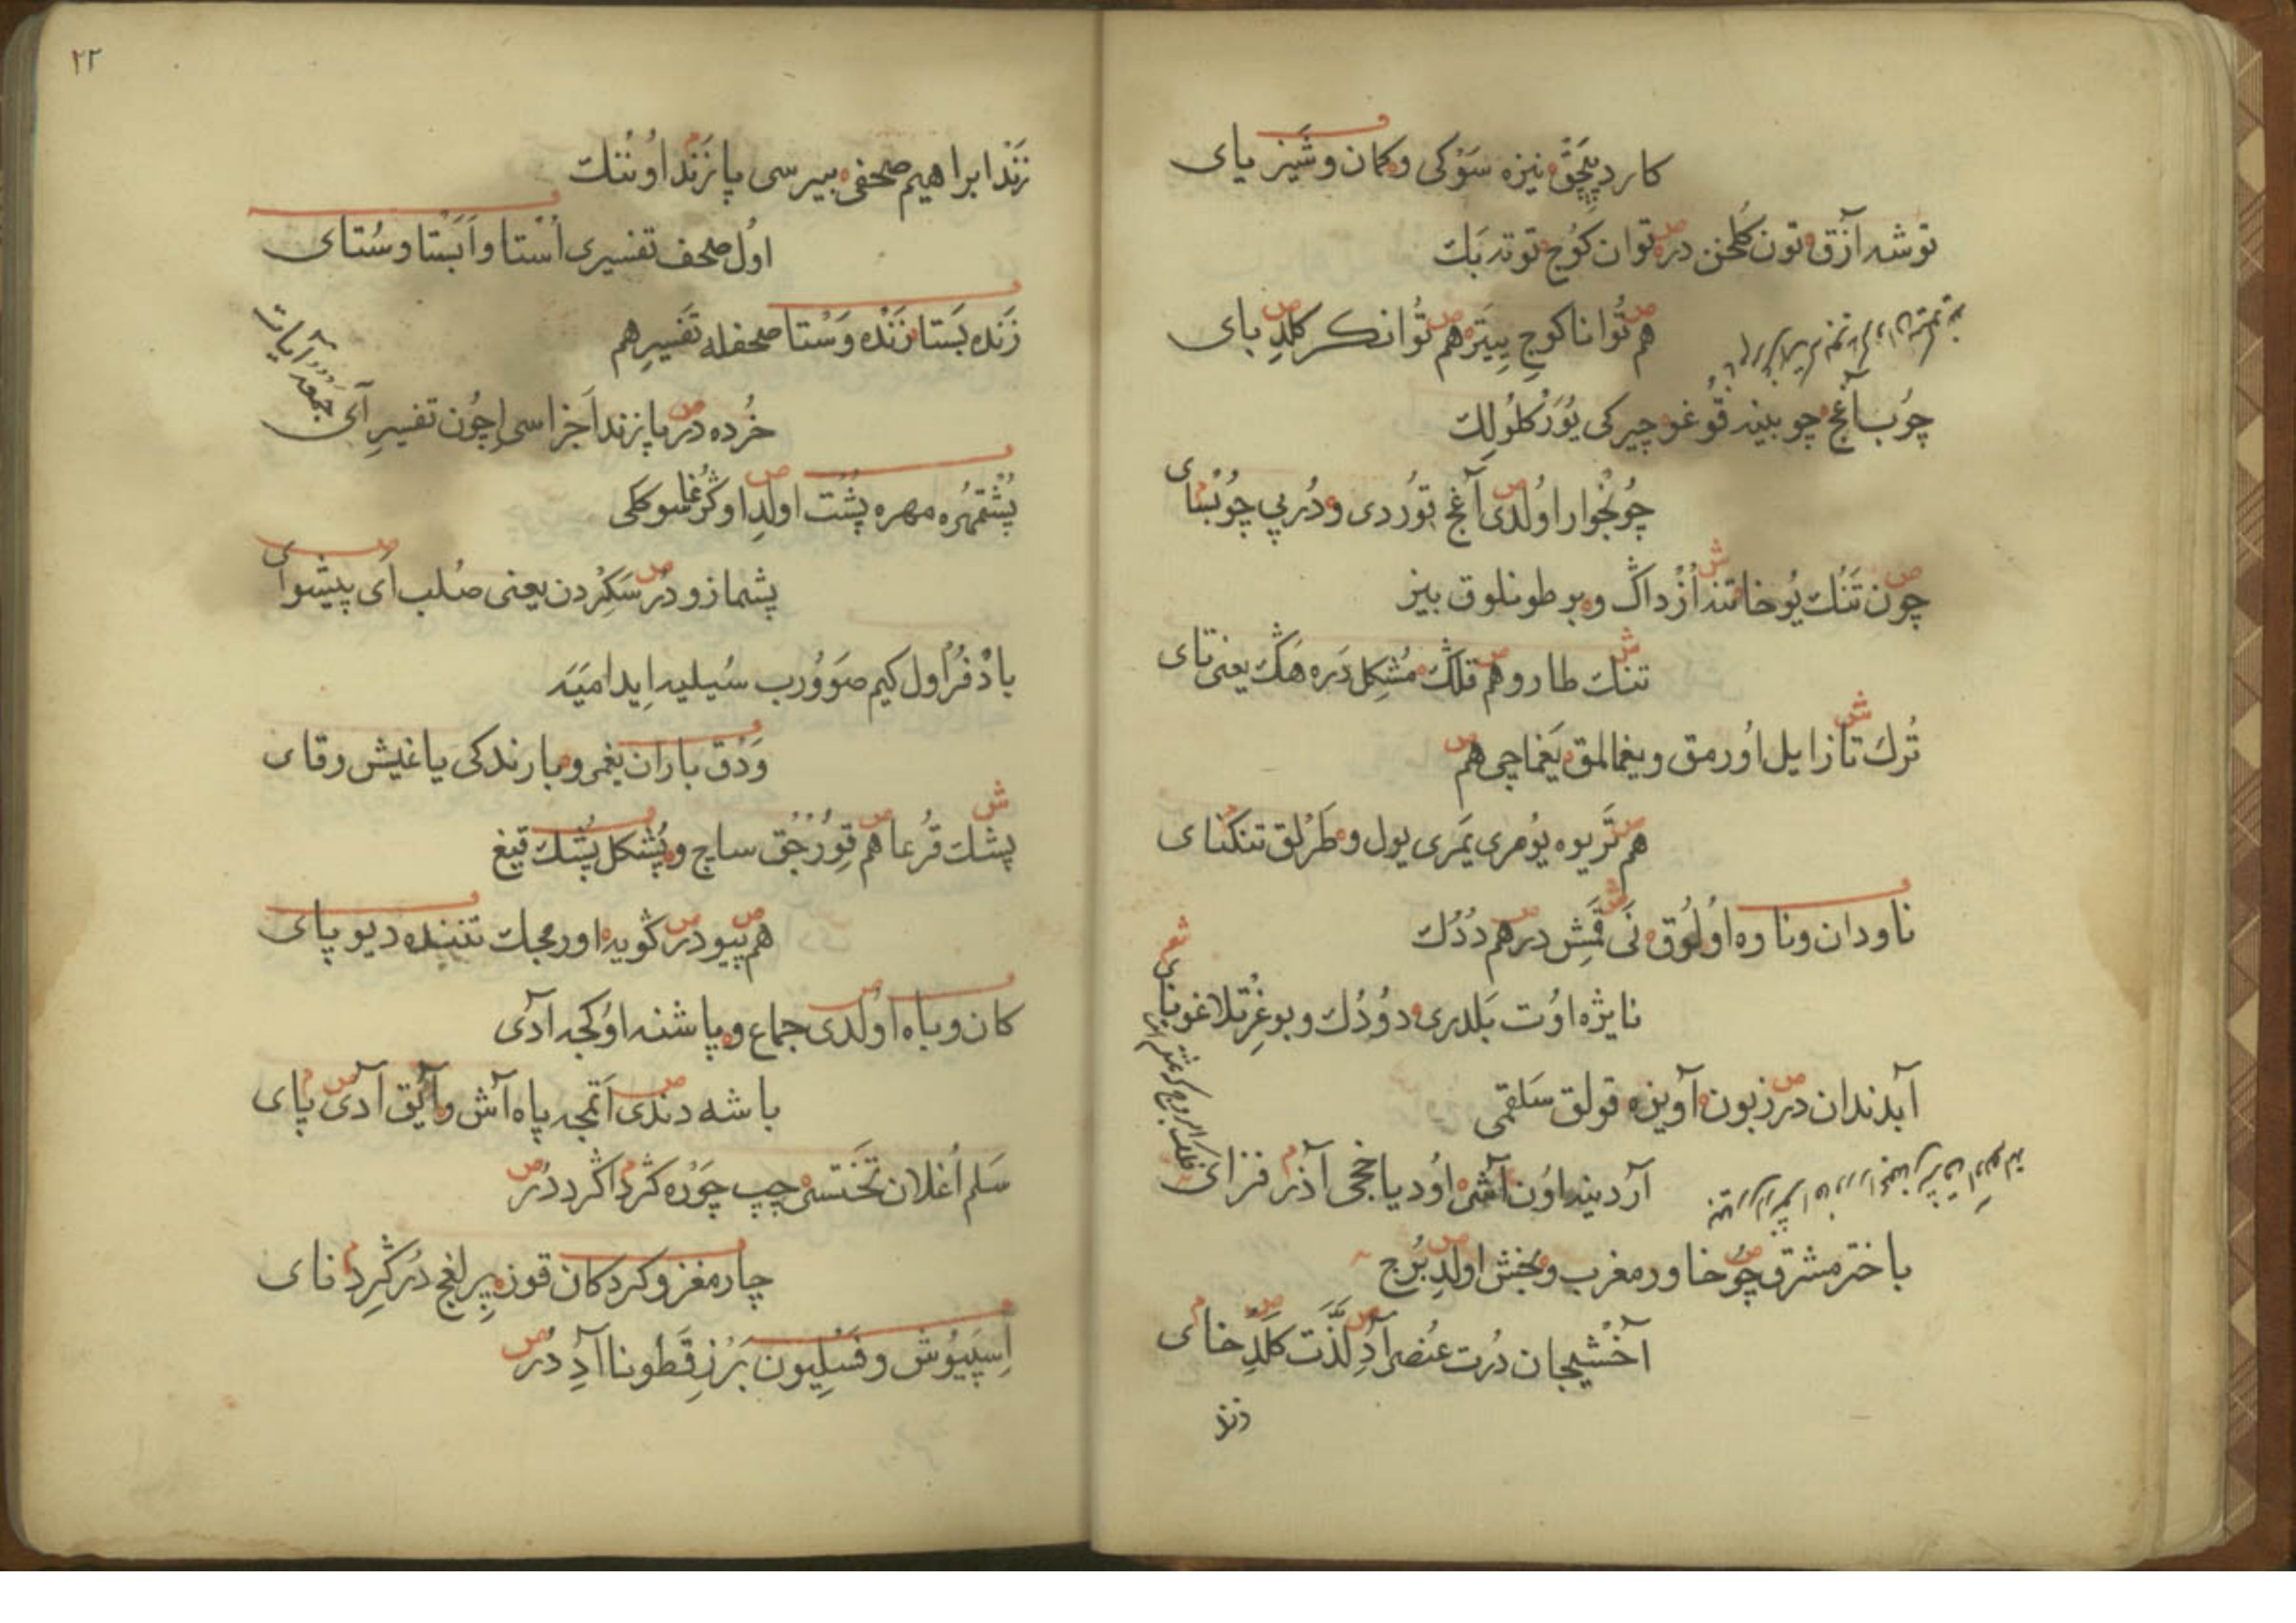 كارد پچق نيزه سوكی وكمان وشيز يای
توشه آزق تون كلخن دره توان كوج توته بك
هم توانا كوج ييتره هم توانكر كلد بای
چوب آغج چوبينه قوغو چيركی يوزكلولك
چونخوار اولدی آغج توردی ودربي چوبسای
چون تنك يوخا تند ازداك وبر طونلوق بيز
تنك طار وهم قلك مشكل دره هنك يعنی تای
ترك تاز ايل اورمق ويغالمق يغماچی هم
هم تريوه يومری يمری يول وطرلق تنكنای
ناودان وناوه اولوق نی قمش در هم ددك
نايژه اوت بلدری دودك وبوغزتلاغو نای
آبدندان در زبون آويزه قولق سلقمی
آردينه اون آشی اوديا خجی آذر فزای
باختر مشرق چو خاور مغرب وبخش اولد برج
آخشيجان درت عنصر آد لذت كلد خای
زند
۲۲
زند ابراهيم صحفی بيرسی پازند اوننك
اول صحف تفسيری استا وابستا وستای
زنده بستا زنده وستا صحفله تفسير هم
خرده در پازند اجزاسی اچون تفسير آی
جمعه آيات
پشتمهره مهره پشت اولد اوكرغا سوكلی
پشمازو در سكردن يعنی صلب ای پيشوای
بادفر اول كيم صوورب سيليه ايدامينه
ودق باران يغمر وبارندكی ياغيش رقای
پشك قرعا هم قورجق ساج وپشكل پشك قيغ
هم پيو در كويه اورمجك تننده ديو پای
كان وباه اولدی جماع وپاشنه اوكجه آدی
باشه دندی اتمجه پاه آش وآيق آدی پای
سلم اغلان تختسی چپ چوره كژد اكرد در
چارمغز وكردكان قوز پرلغج در كرد نای
اسپيوش وفسليون بزر قطونا آد در